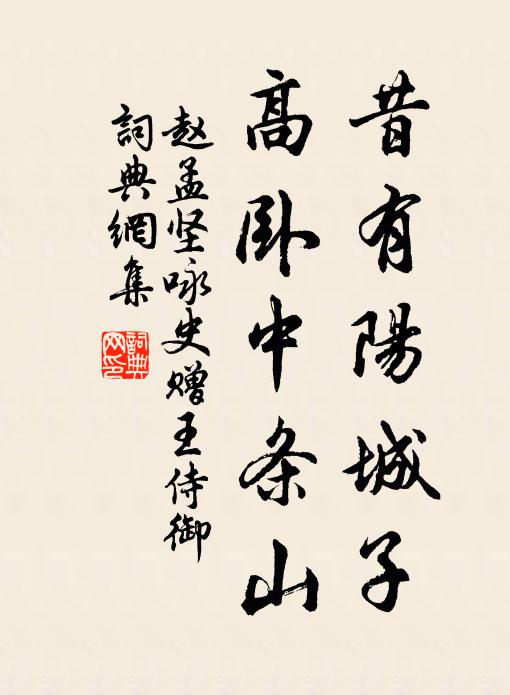 昔有陽城子
高卧中条山
赵孟坚咏史赠王侍御
詞典網集
詞典
网印